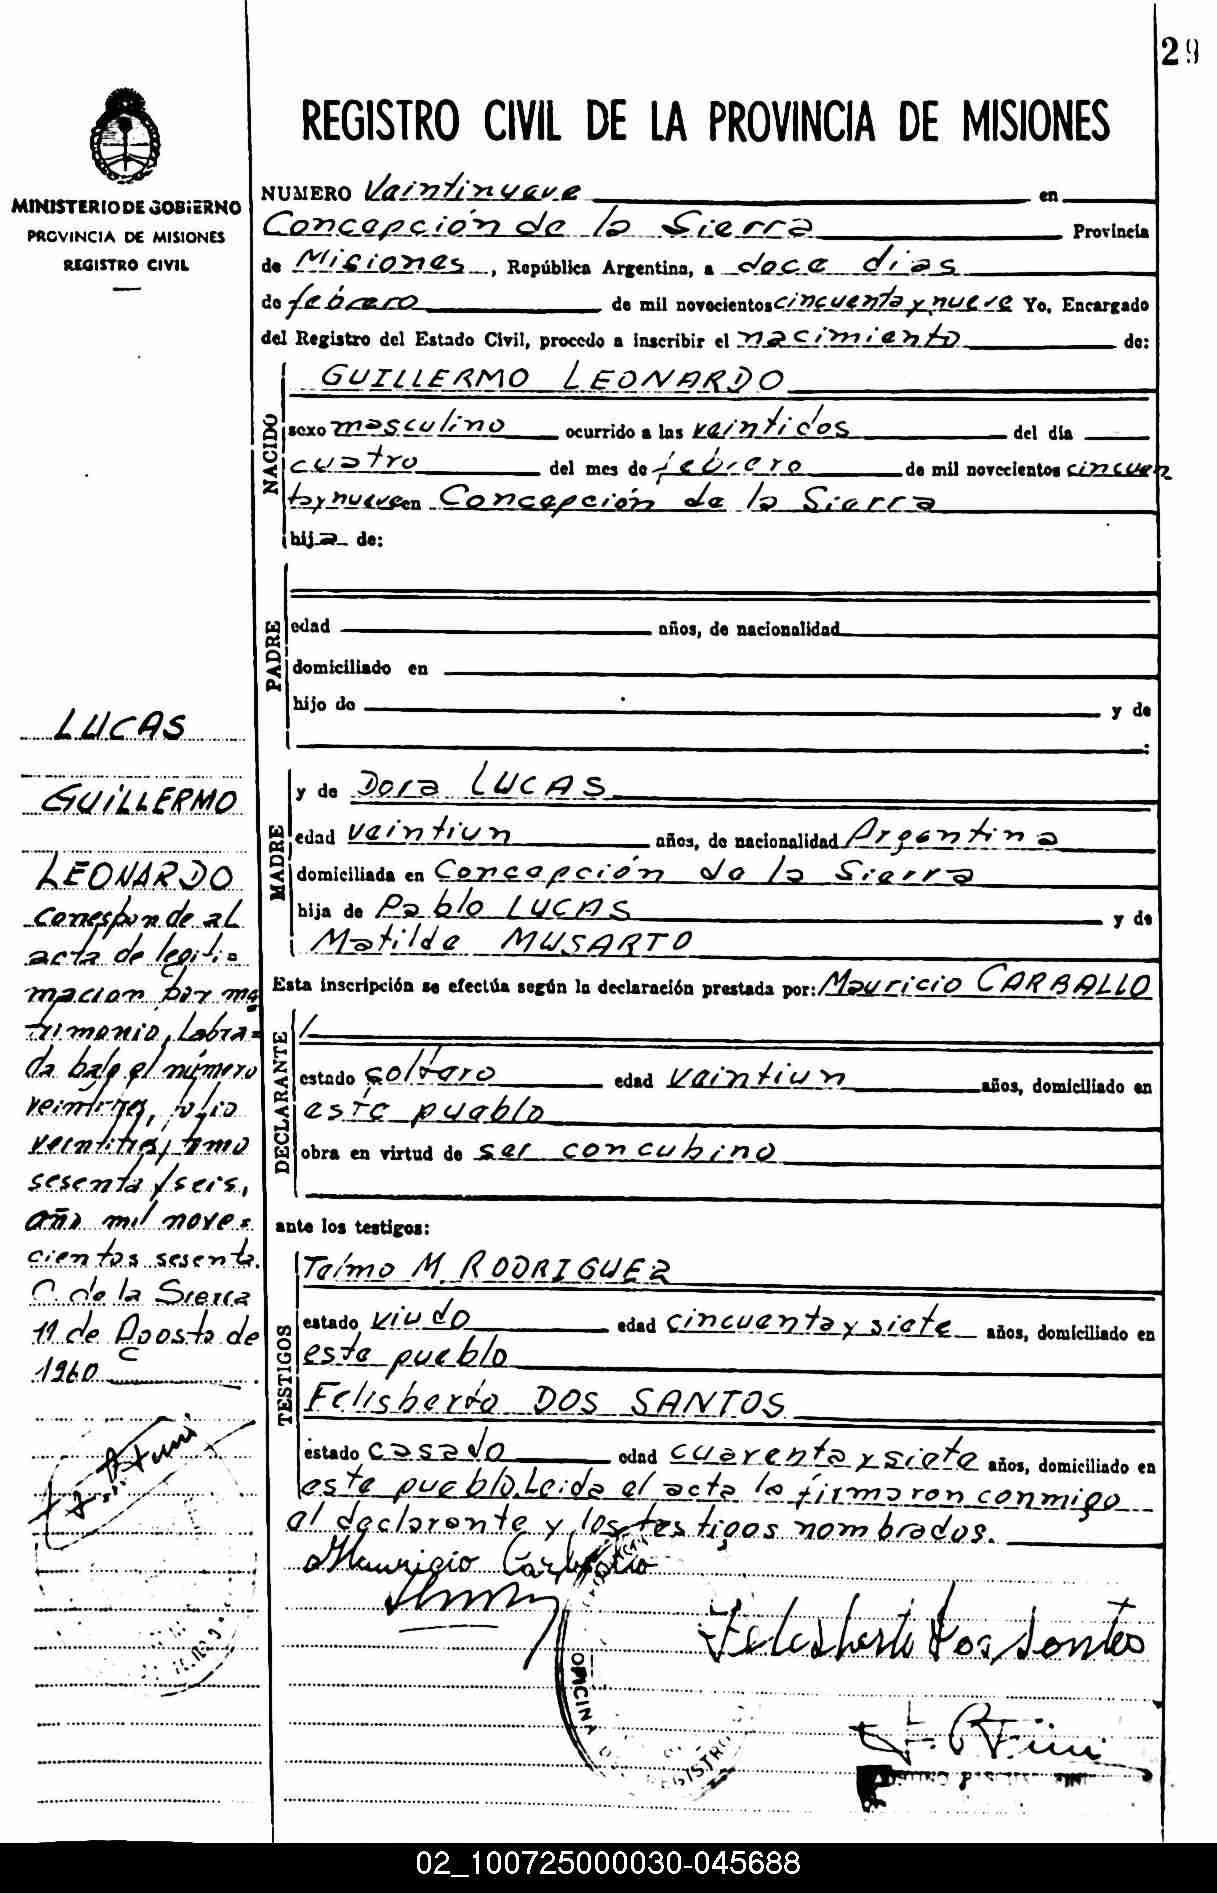 29
REGISTRO CIVIL DE LA PROVINCIA DE MISIONES
MINISTERIO DE GOBIERNO
PROVINCIA DE MISIONES
REGISTRO CIVIL
NUMERO Veintinueve en
Concepción de la Sierra Provincia
de Misiones, República Argentina, a doce dias
de febrero de mil novecientos cincuenta y nueve Yo, Encargado
del Registro del Estado Civil, procedo a inscribir el nacimiento de:
NACIDO
GUILLERMO LEONARDO
sexo masculino ocurrido a las veintidos del día
cuatro del mes de febrero de mil novecientos cincuen
ta y nueve en Concepción de la Sierra
hija de:
PADRE
edad años, de nacionalidad
domiciliado en
hijo de y de
MADRE
y de Dora LUCAS
edad veintiun años, de nacionalidad Argentina
domiciliada en Concepción de la Sierra
hija de Pablo LUCAS y de
Matilde MUSARTO
Esta inscripción se efectúa según la declaración prestada por: Mauricio CARBALLO
DECLARANTE
estado soltero edad veintiun años, domiciliado en
este pueblo
obra en virtud de ser concubino
ante los testigos:
TESTIGOS
Telmo M. RODRIGUEZ
estado viudo edad cincuenta y siete años, domiciliado en
este pueblo
Felisberto DOS SANTOS
estado casado edad cuarenta y siete años, domiciliado en
este pueblo. Leida el acta la firmaron conmigo
el declarante y los testigos nombrados.
Mauricio Carballo
Felesberto Dos Santos
OFICINA REGISTRO
LUCAS
GUILLERMO
LEONARDO
Corresponde al
acta de legiti-
macion por ma
trimonio, labra=
da bajo el número
veintitres, folio
veintitres, tomo
sesenta y seis,
año mil nove=
cientos sesenta.
C. de la Sierra
11 de Agosto de
1960
02_100725000030-045688